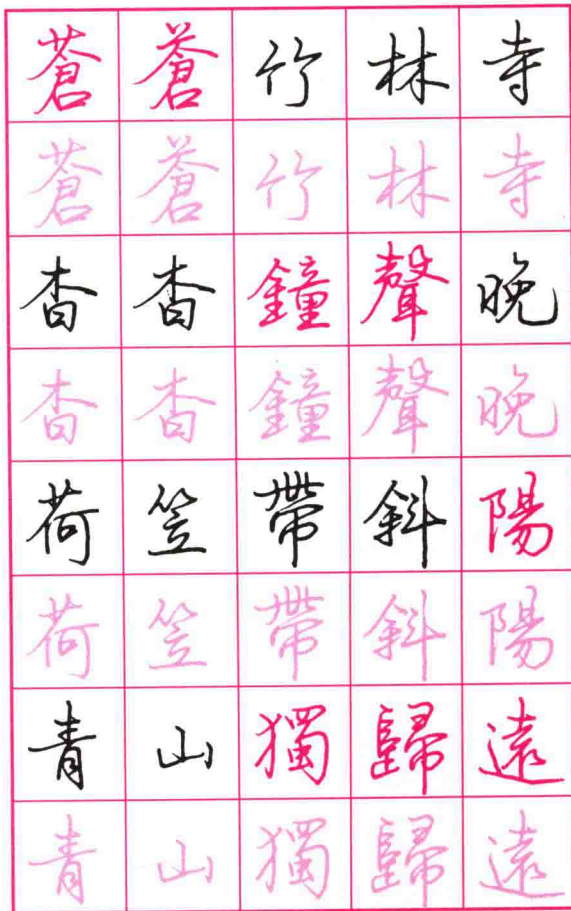 蒼蒼竹林寺
蒼蒼竹林寺
杳杳鐘聲晚
杳杳鐘聲晚
荷笠帶斜陽
荷笠帶斜陽
青山獨歸遠
青山獨歸遠